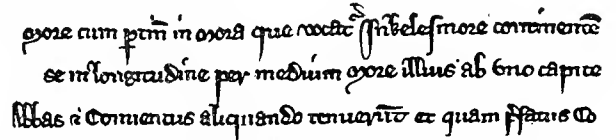 more cum ꝑtin̄ in mora que vocat᷒ continentē
se in longitudine per medium more illius ab uno capite
Abbas ⁊ Conventus aliquando tenuerūt et quam p̄fatus Co